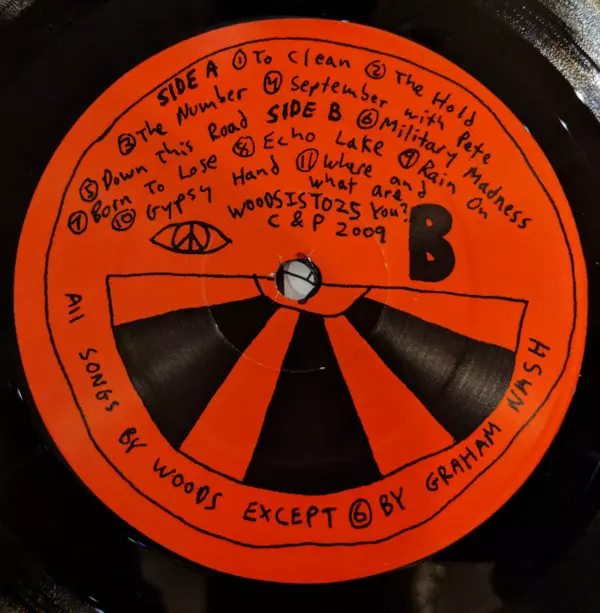 SIDE A ① To Clean ② The Hold
③ The Number ④ September with Pete
⑤ Down This Road SIDE B ⑥ Military Madness
⑦ Born To Lose ⑧ Echo Lake ⑨ Rain On
⑩ Gypsy Hand ⑪ Where and
what are
You?
WOODSIST025
C & P 2009
B
All SONGS BY WOODS EXCEPT ⑥ BY GRAHAM NASH